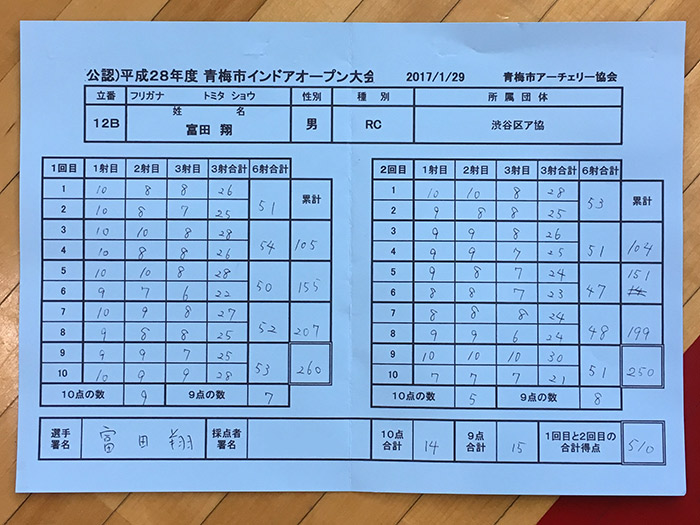 公認)平成28年度 青梅市インドアオープン大会 2017/1/29 青梅市アーチェリー協会
立番 フリガナ トミタ ショウ 性別 種別 所属団体
12B 姓名 富田 翔 男 RC 渋谷区ア協
1回目 1射目 2射目 3射目 3射合計 6射合計
1 10 8 8 26 51 累計
2 10 8 7 25
3 10 10 8 28 54 105
4 10 8 8 26
5 10 10 8 28 50 155
6 9 7 6 22
7 10 9 8 27 52 207
8 9 8 8 25
9 9 9 7 25 53 260
10 10 9 9 28
10点の数 9 9点の数 7
2回目 1射目 2射目 3射目 3射合計 6射合計
1 10 10 8 28 53 累計
2 9 8 8 25
3 9 9 8 26 51 104
4 9 9 7 25
5 9 8 7 24 47 151
6 8 8 7 23
7 8 8 8 24 48 199
8 9 9 6 24
9 10 10 10 30 51 250
10 7 7 7 21
10点の数 5 9点の数 8
選手署名 富田翔 採点者署名 10点合計 14 9点合計 15 1回目と2回目の合計得点 510